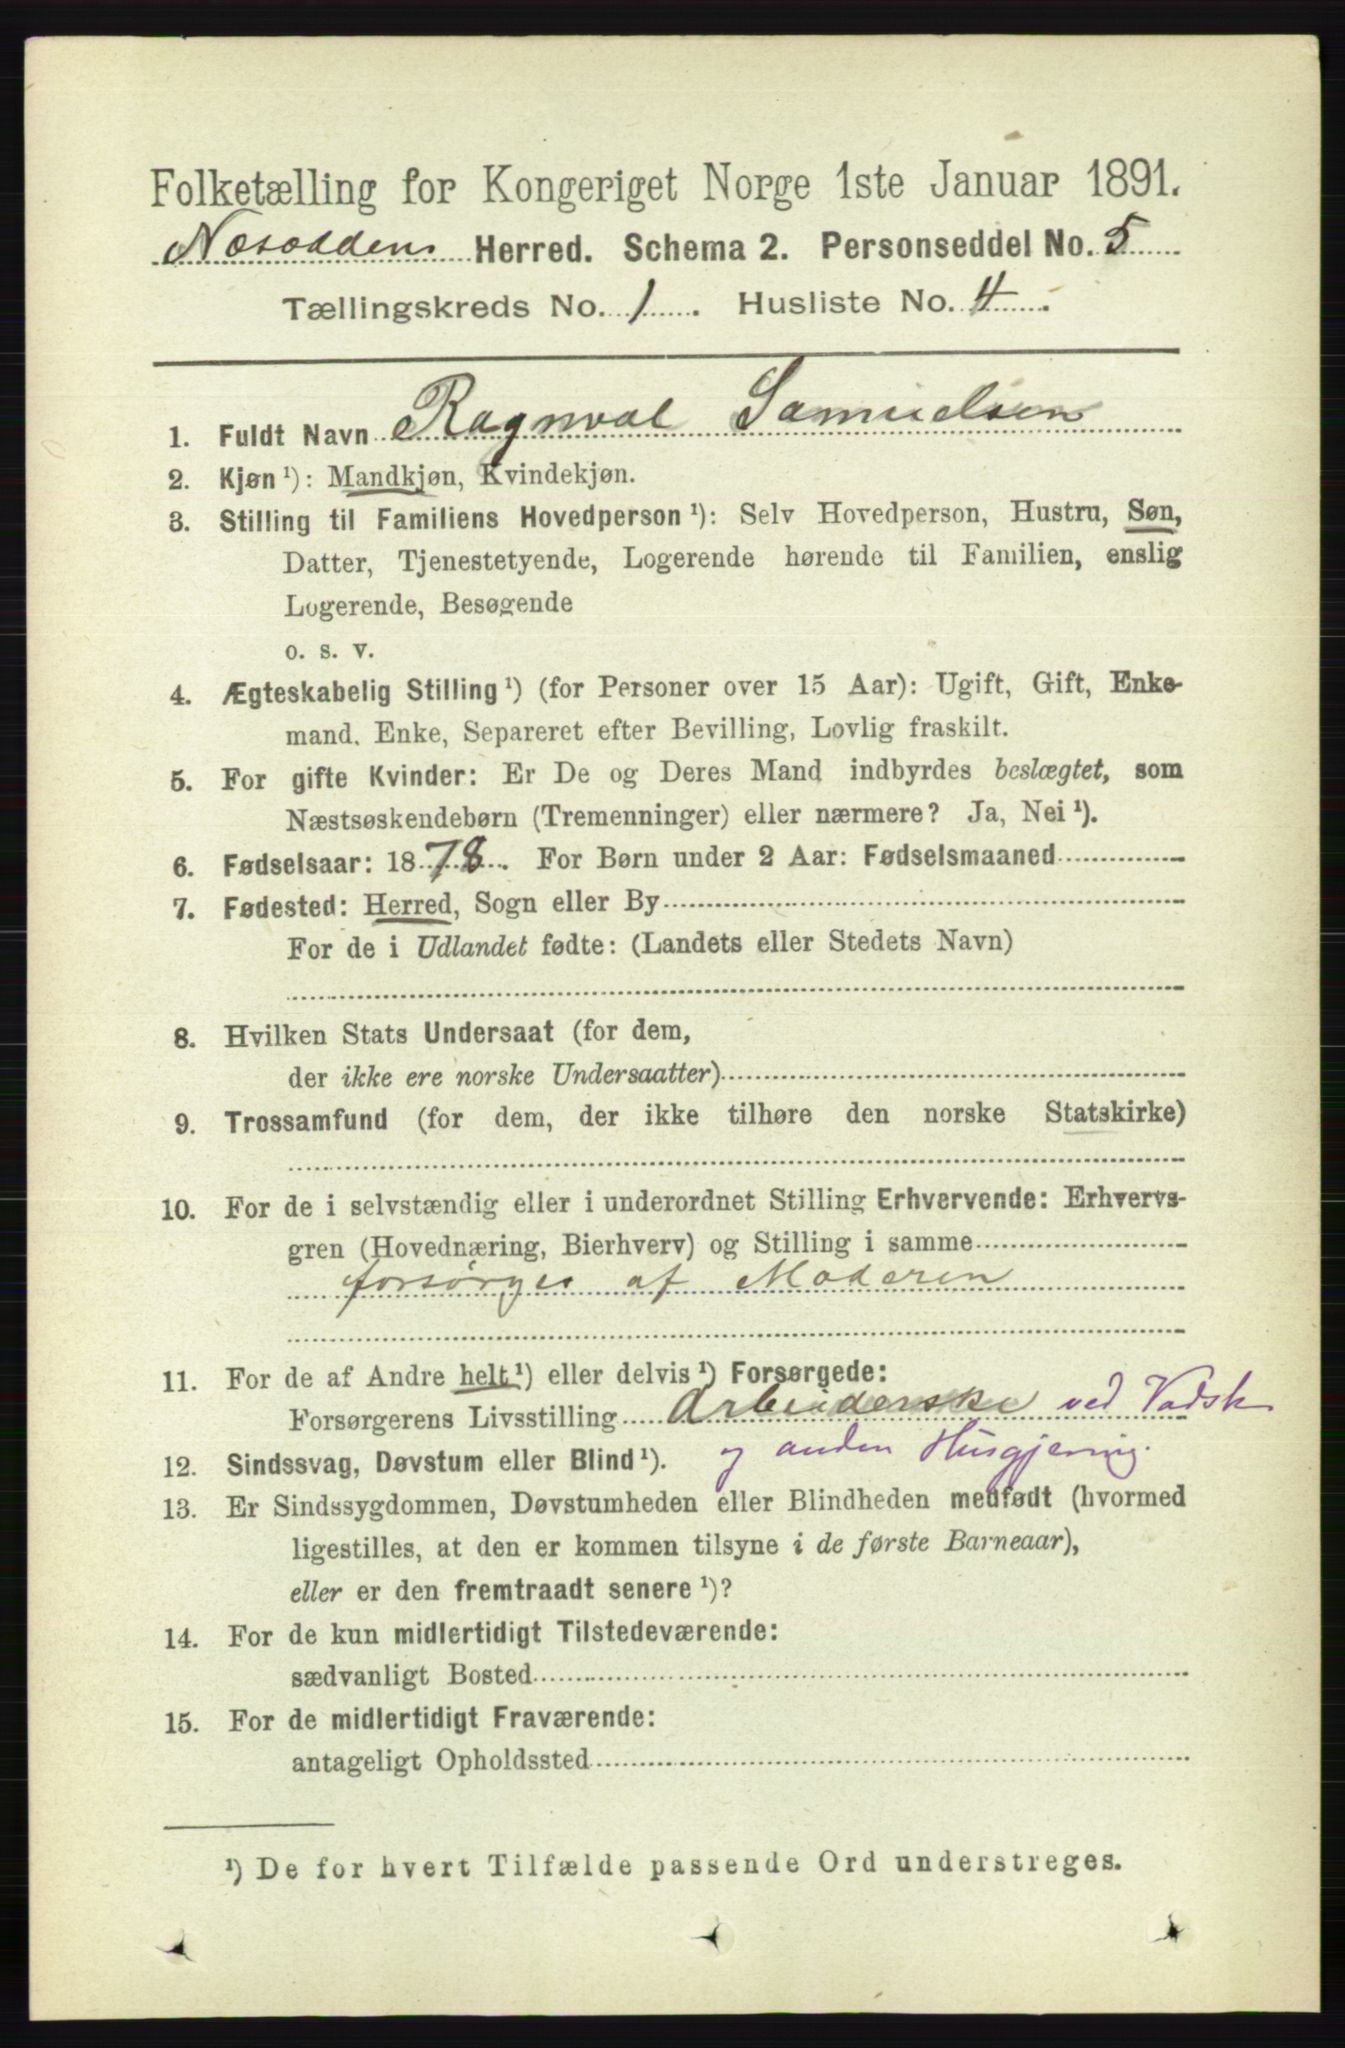 Folketælling for Kongeriget Norge 1ste Januar 1891.
Næsoddens Herred. Schema 2. Personseddel No. 5
Tællingskreds No. 1. Husliste No. 4.
1. Fuldt Navn Ragnval Samuelsen
2. Kjøn¹): Mandkjøn, Kvindekjøn.
3. Stilling til Familiens Hovedperson¹): Selv Hovedperson, Hustru, Søn,
Datter, Tjenestetyende, Logerende hørende til Familien, enslig
Logerende, Besøgende
o. s. v.
4. Ægteskabelig Stilling¹) (for Personer over 15 Aar): Ugift, Gift, Enke-
mand, Enke, Separeret efter Bevilling, Lovlig fraskilt.
5. For gifte Kvinder: Er De og Deres Mand indbyrdes beslægtet, som
Næstsøskendebørn (Tremenninger) eller nærmere? Ja, Nei¹).
6. Fødselsaar: 1878. For Børn under 2 Aar: Fødselsmaaned
7. Fødested: Herred, Sogn eller By
For de i Udlandet fødte: (Landets eller Stedets Navn)
8. Hvilken Stats Undersaat (for dem,
der ikke ere norske Undersaatter)
9. Trossamfund (for dem, der ikke tilhøre den norske Statskirke)
10. For de i selvstændig eller i underordnet Stilling Erhvervende: Erhvervs-
gren (Hovednæring, Bierhverv) og Stilling i samme
forsørges af Moderen
11. For de af Andre helt¹) eller delvis¹) Forsørgede:
Forsørgerens Livsstilling Arbeiderske ved Vadsk
og anden Husgjerning.
12. Sindssvag, Døvstum eller Blind¹).
13. Er Sindssygdommen, Døvstumheden eller Blindheden medfødt (hvormed
ligestilles, at den er kommen tilsyne i de første Barneaar),
eller er den fremtraadt senere¹)?
14. For de kun midlertidigt Tilstedeværende:
sædvanligt Bosted
15. For de midlertidigt Fraværende:
antageligt Opholdssted
¹) De for hvert Tilfælde passende Ord understreges.